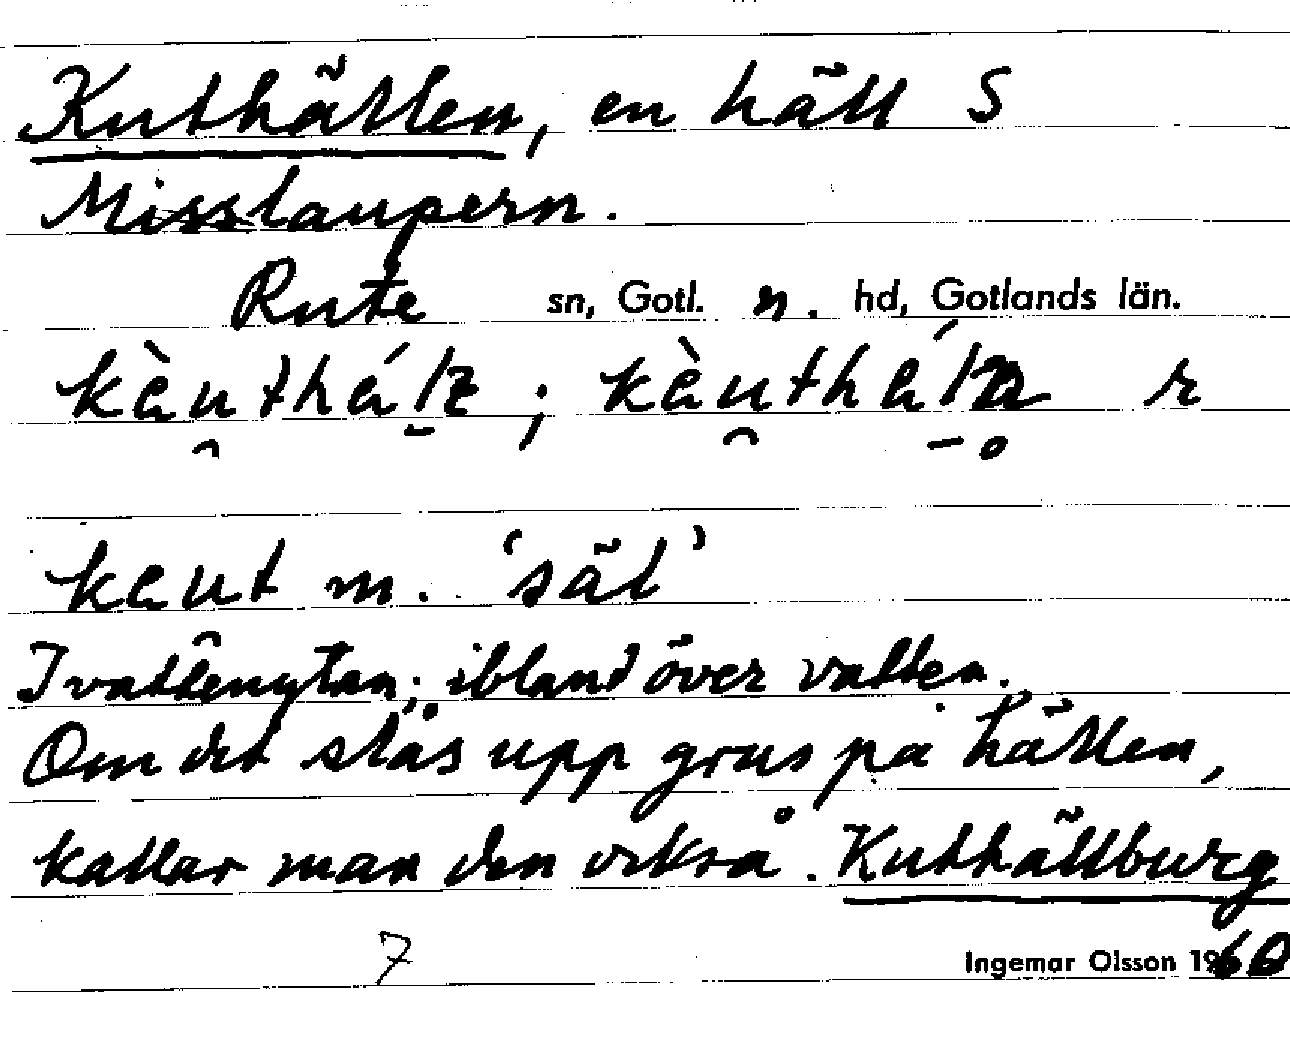 Kuthällen, en häll S
Misslaupern.
Rute sn, Gotl. n. hd, Gotlands län.
r
kaut m. 'säl'
I vattenytan; ibland över vatten.
Om det slås upp grus på hällen,
kallar man den också Kuthällburg
7 Ingemar Olsson 1960